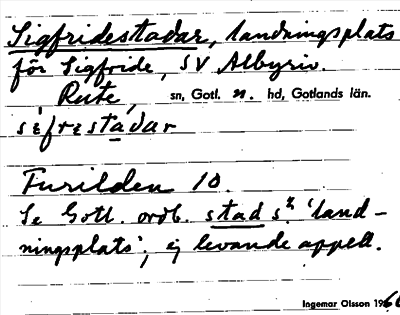 Sigfridestadar, landningsplats
för Sigfride, SV Albyriv.
Rute, sn, Gotl. n. hd, Gotlands län.
sɛfrɛstadar
Furilden 10.
Se Gotl. ordb. stad s. 'land-
ningsplats', ej levande appell.
Ingemar Olsson 1966